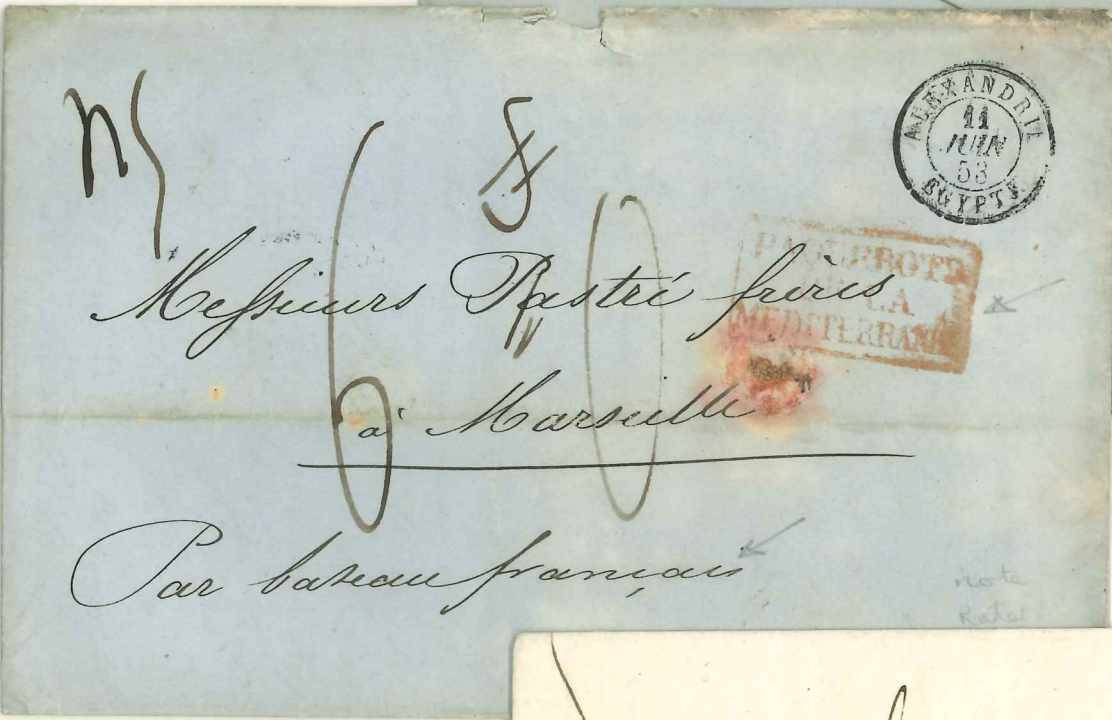 ALEXANDRIE
11
JUIN
53
EGYPTE
PAQUEBOTS
DE LA
MEDITERRANÉE
60
Messieurs Pastré frères
à Marseille
Par bateau français
note
Rate